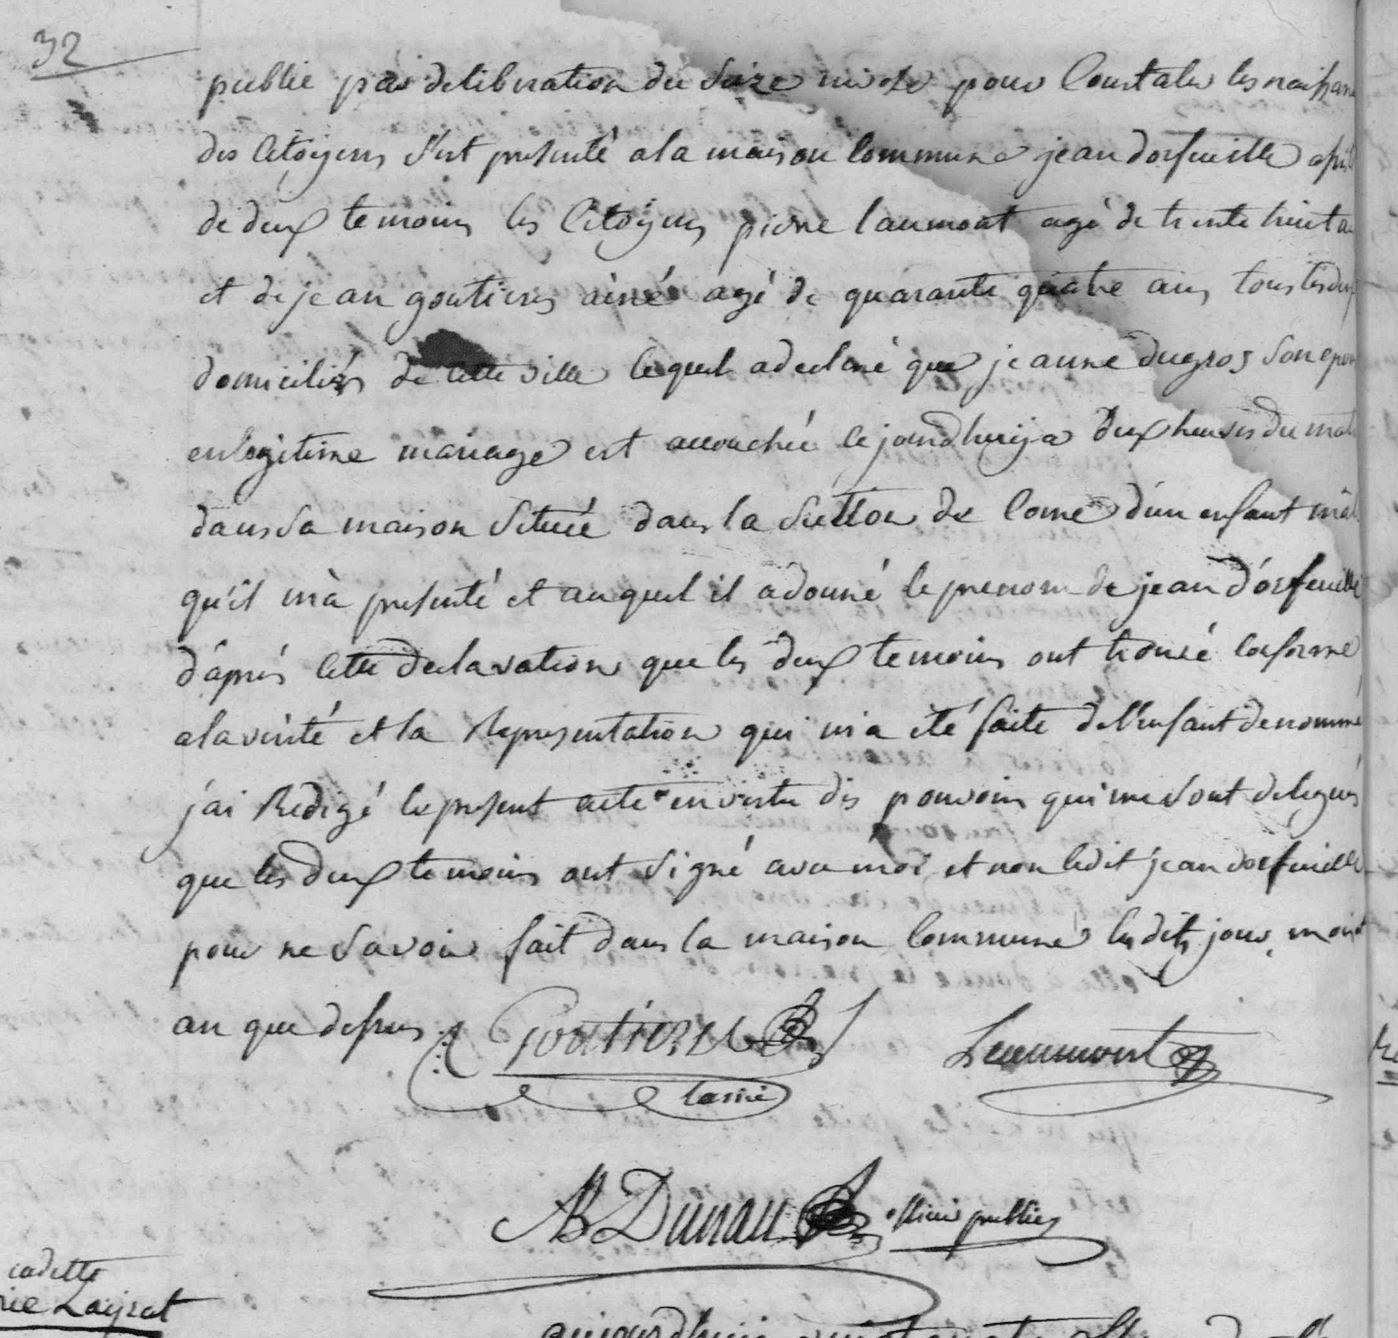 32
publié par deliberation du seize nivose pour Constater les naissan
des Citoyens s'est presenté a la maison Commune jean dorfeuille assis
de deux temoins les Citoyens pierre laumont agé de trente huit an
et de jean goutieres ainé agé de quarante quatre ans tous les deux
domiciliés de cette ville lequel a declaré que jeanne dugros son epou
en legitime mariage est accouchée cejourdhuy a deux heures du mati
dans sa maison située dans la section de Come d'un enfant mâl
qu'il m'a presenté et auquel il a donné le prenom de jean d'orfeuille
d'après cette declaration que les deux temoins ont trouvé conforme
a la verité et la Representation qui m'a eté faite de l'enfant denommé
j'ai Redigé le present acte en vertu des pouvoirs qui me sont delegués
que les deux temoins ont signé avec moi et non ledit jean dorfeuille
pour ne savoir fait dans la maison Commune lesdits jour, mois et
an que dessus Goutieres Leaumont
lainé
Dunau officier public
cadette
Layrat
aujourdhuy